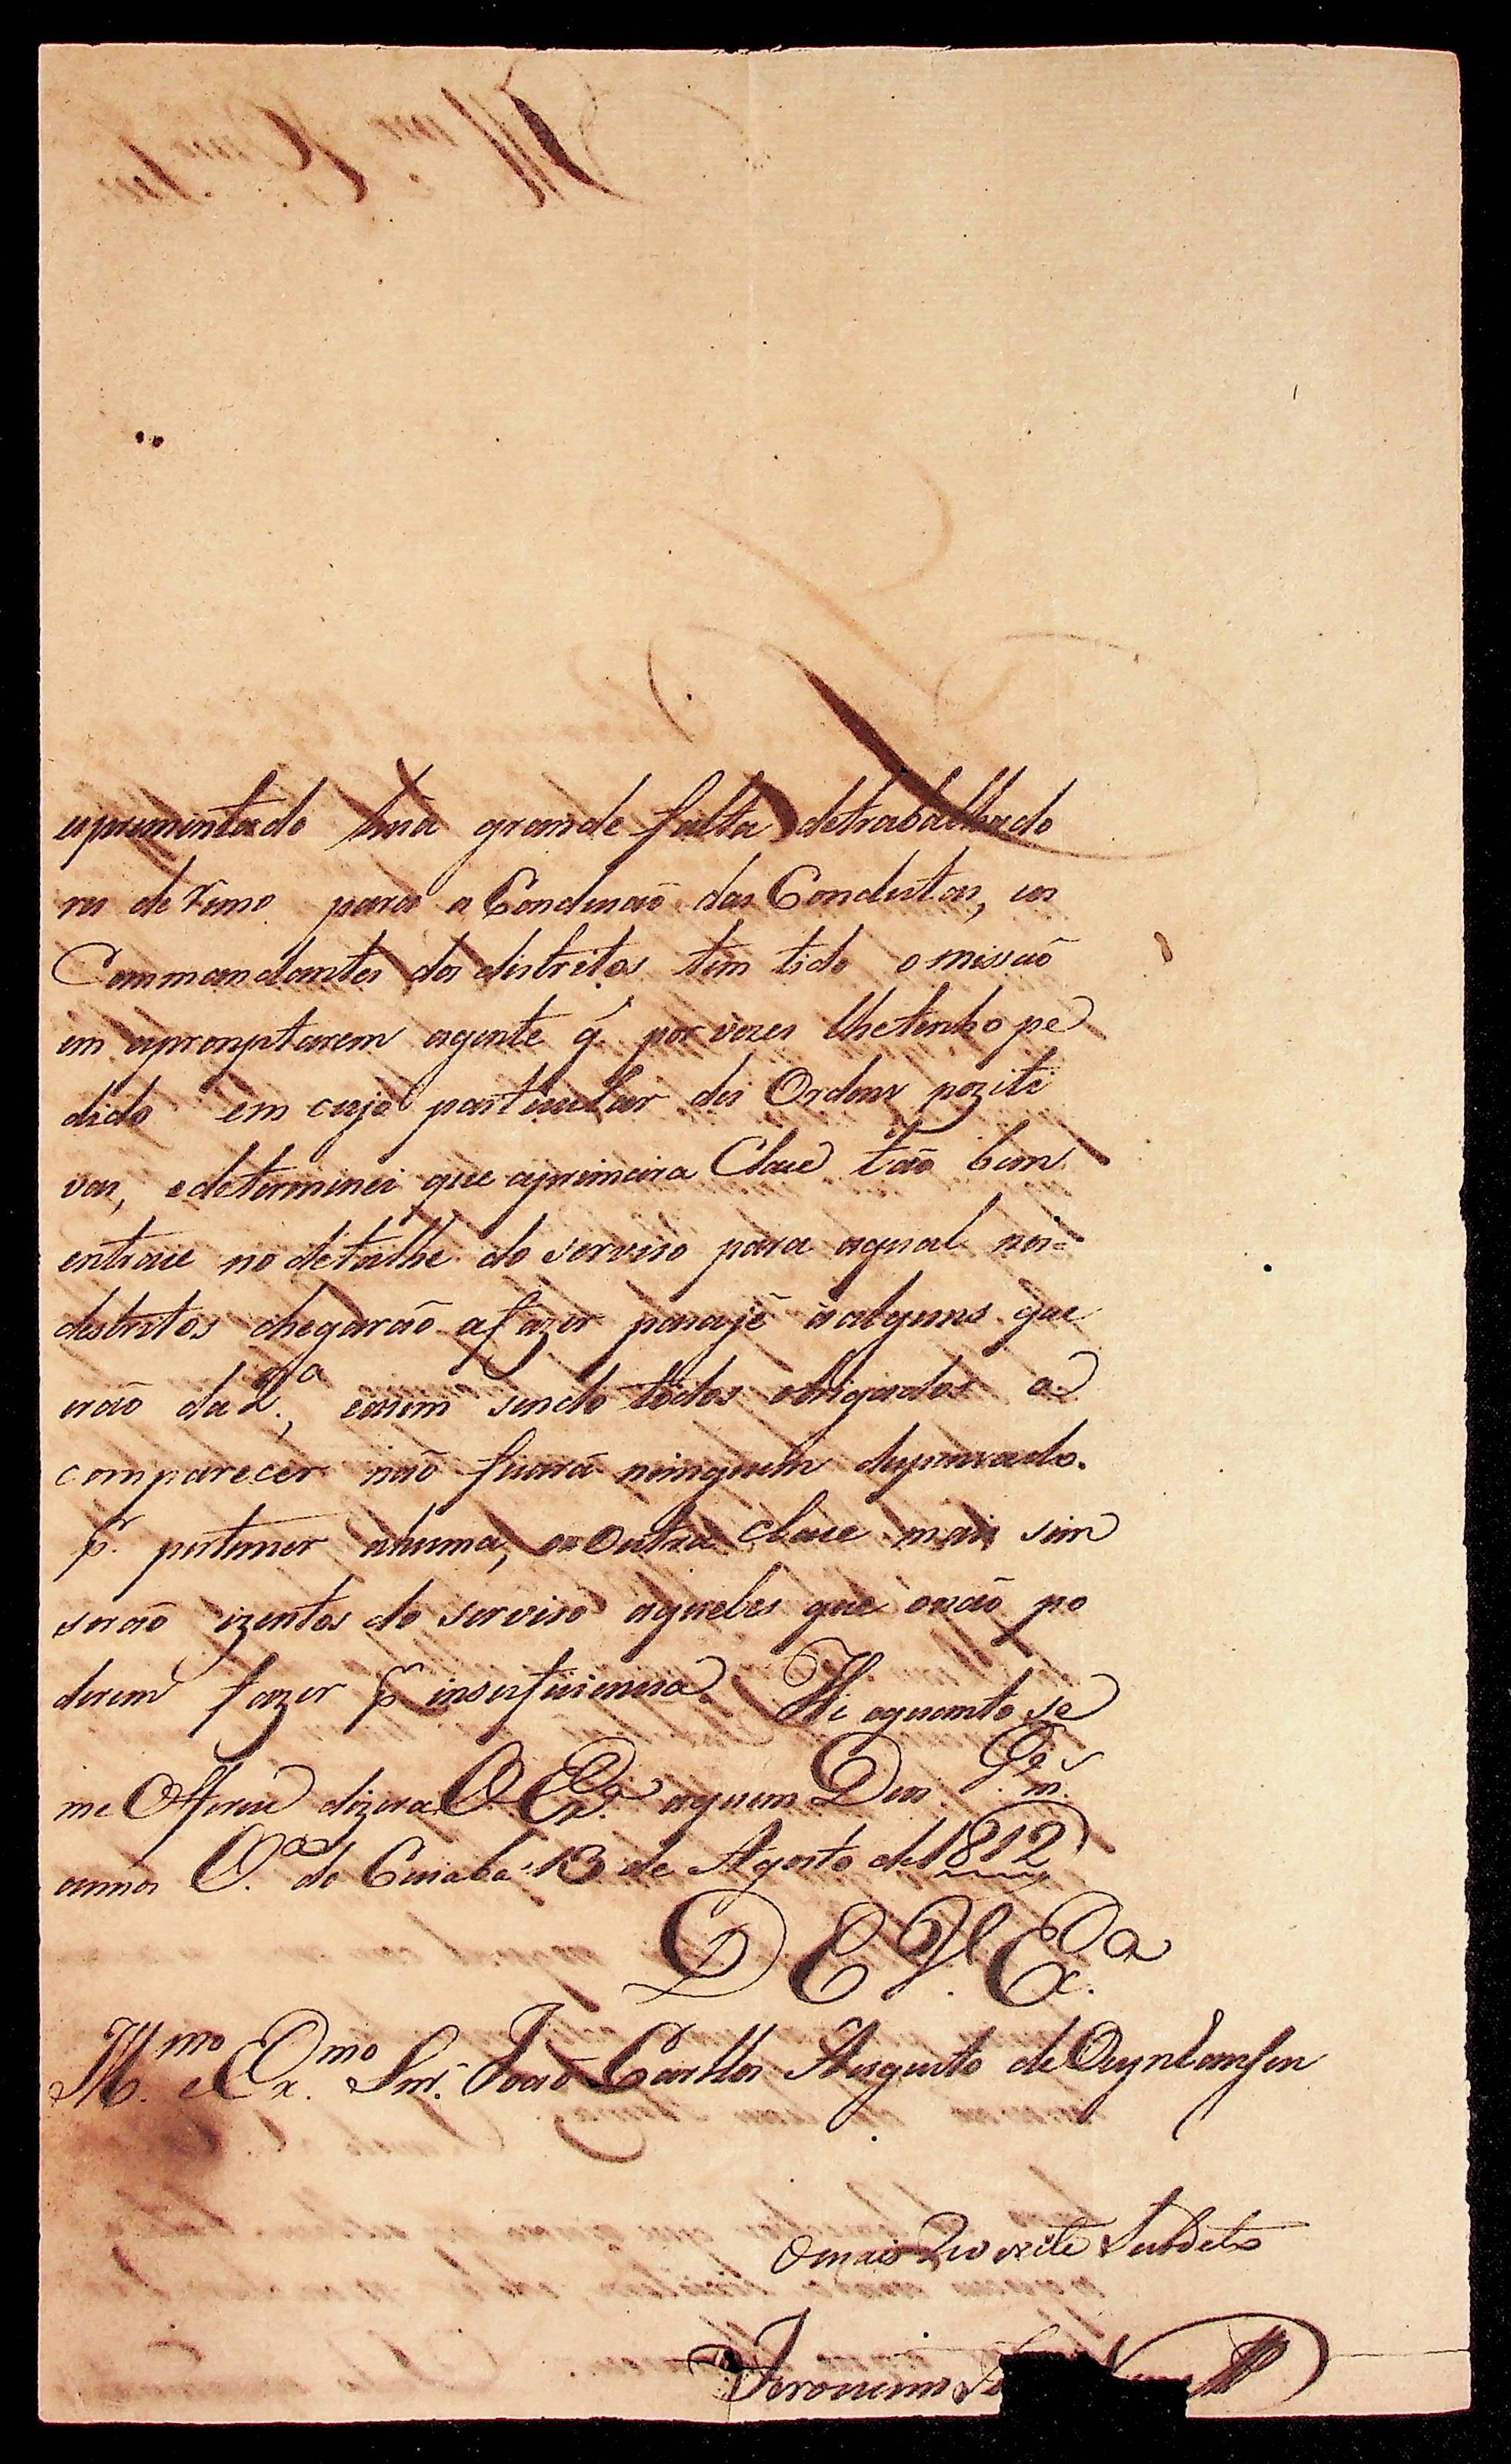 exprimentado hũa grande falta detrabalhado
res de remo para a Condusaõ das Condutas, eos
Commandantes dos distritos tem tido omissaõ
em apromptarem agente q̃ por vezes lhetenho pe
dido em cujo particular dei Ordens poziti
vas, edeterminei que aprimeira Clase taõ bem
entrase no detalhe do serviso para aqual nos=
destritos chegaraõ afazer pasaje à alguns que
eraõ da 2.ª, easim sendo todos obrigados a
comparecer naõ ficará ninguem
p.r pertencer ahuma, ou Outra clase mais sim
seraõ izentos do serviso aqueles que onaõ po
derem fazer p.r insuficiencia. He oquanto se
me Offerece dizera V. Ex.ª aquem Deos G.de m.s
annos V.ª do Cuiaba 13 de Agosto de 1812
D E V. Ex.ª
Ill.mo e Ex.mo Snr. Joaõ Carllos Augusto de Oeynhausen
Omais Reverente Subdito
Jeronimo